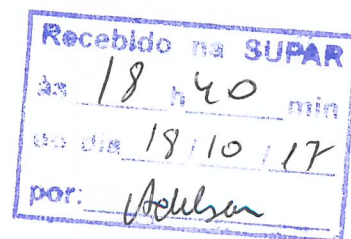 Recebido na SUPAR
às 18 h 40 min
do dia 18/10/17
por: Adelson